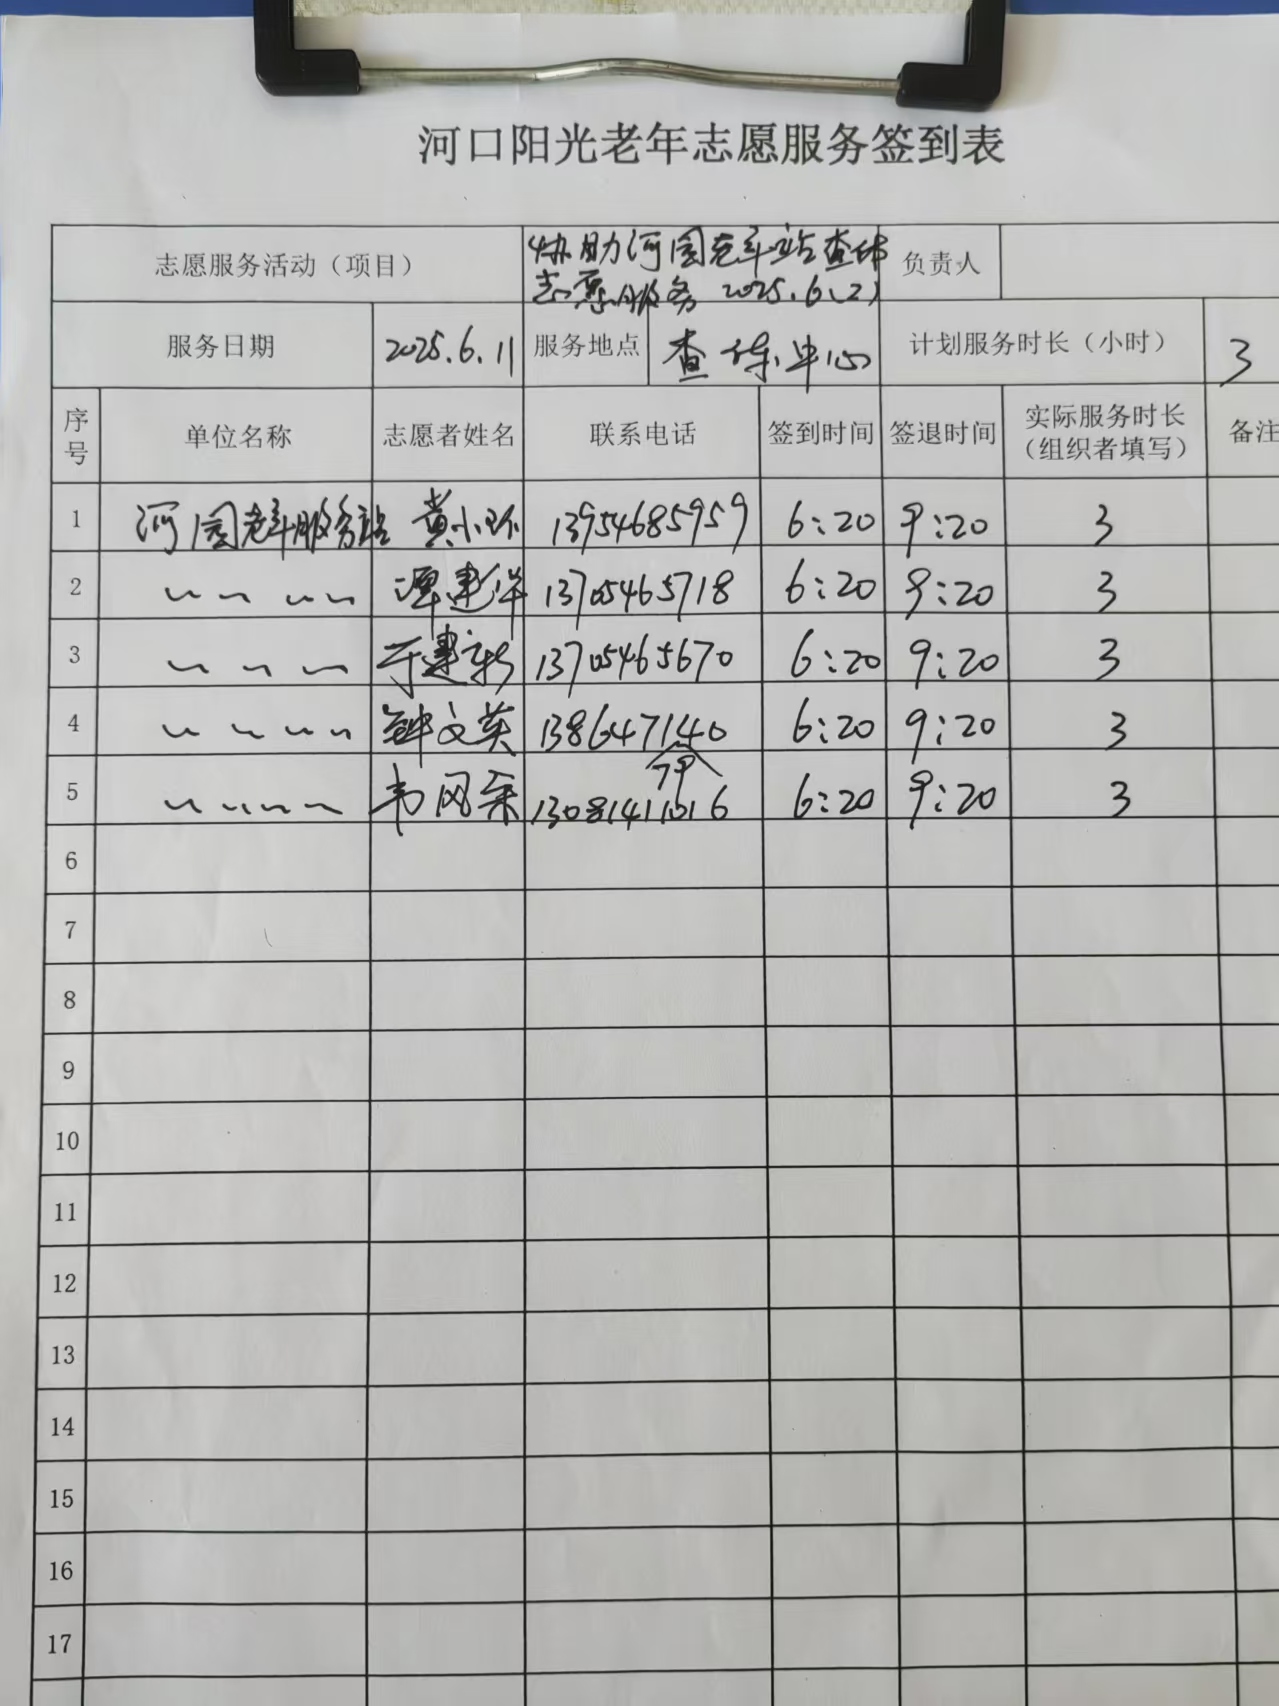 河口阳光老年志愿服务签到表
志愿服务活动（项目） 协助河园老年站查体志愿服务 2025.6(2) 负责人
服务日期 2025.6.11 服务地点 查体中心 计划服务时长（小时） 3
序号 单位名称 志愿者姓名 联系电话 签到时间 签退时间 实际服务时长（组织者填写） 备注
1 河园老年服务站 黄小环 13954685959 6:20 9:20 3
2 〃 〃 〃 〃 谭建华 13705465718 6:20 9:20 3
3 〃 〃 〃 于建新 13705465670 6:20 9:20 3
4 〃 〃 〃 〃 钟文英 138647140 6:20 9:20 3
79
5 〃 〃 〃 〃 韦风 6:20 9:20 3
6
7
8
9
10
11
12
13
14
15
16
17